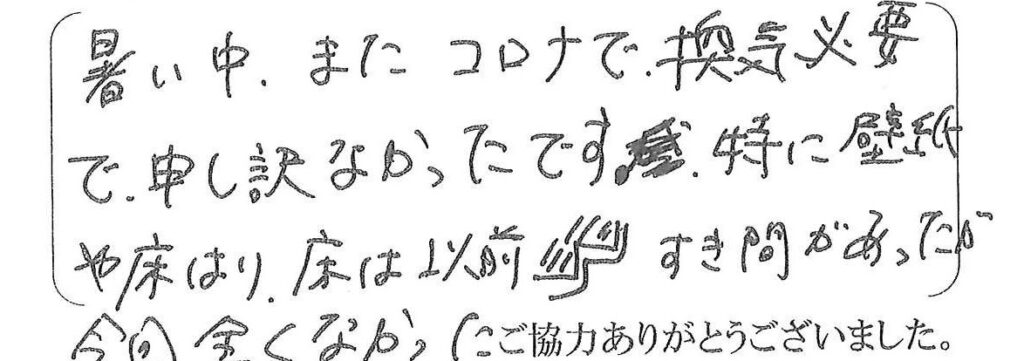 暑い中、また コロナで、換気必要
で、申し訳なかったです。特に壁紙
や床はり、床は以前 すき間があったが
今回 全くなかった
ご協力ありがとうございました。